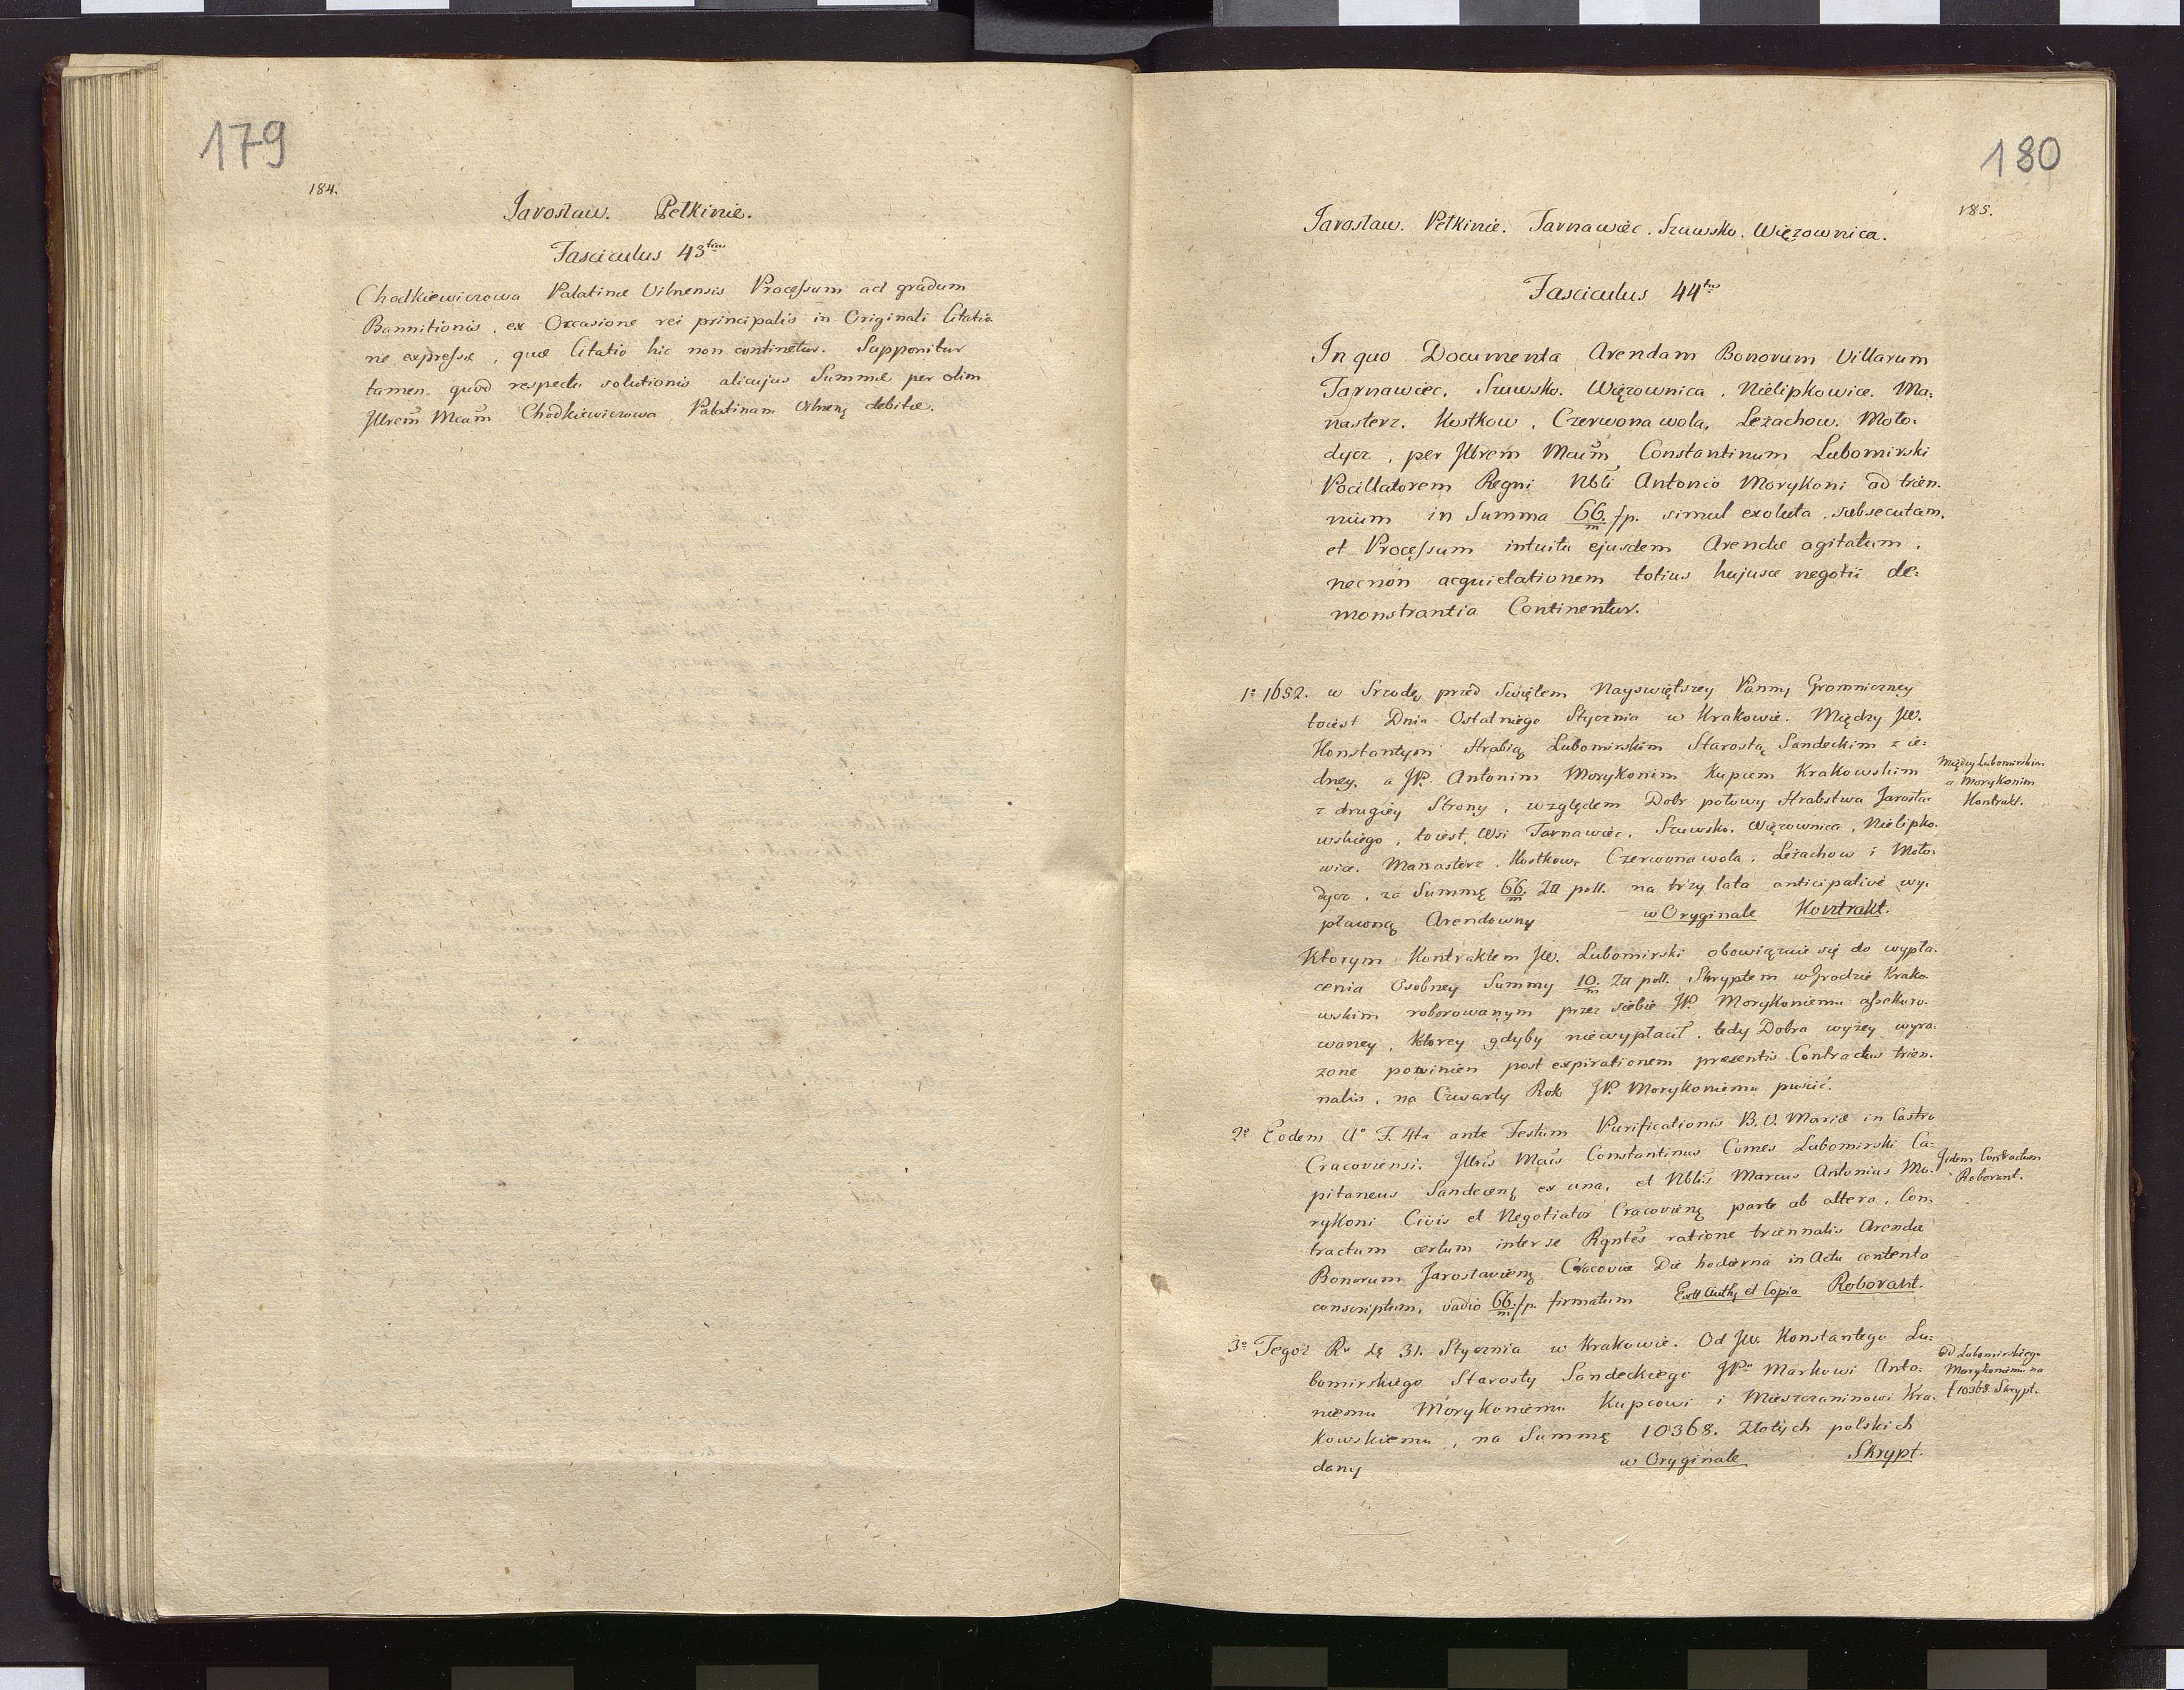 179
184.
Jarosław. Pełkinie.
Fasciculus 43tius
Chodkiewiczowa Palatinæ Vilnensis Processum ad gradum
Bannitionis, ex Occasione rei principalis in Originali Citatio
ne expressæ, quæ Citatio hic non continetur. Supponitur
tamen, quòd respectu solutionis alicujus Summæ per olim
Illrem Maam̃ Chodkiewiczowa Palatinam Vilneñ debitæ.
180
185.
Jarosław. Pełkinie. Tarnawiec. Szuwsko. Więzownica.
Fasciculus 44tus
In quo Documenta Arendam Bonorum Villarum
Tarnawiec, Szuwsko. Więzownica, Nielipkowice. Ma:
nasterz. Kostkow, Czerwona wola, Leżachow. Moło:
dycz, per Illrem Maum̃ Constantinum Lubomirski
Pocillatorem Regni Nbli Antonio Morykoni ad trien:
nium in Summa 66/m fp. simul exoluta, subsecutam,
et Processum intuitu ejusdem Arendæ agitatum,
necnon acquietationem totius hujusce negotii de:
monstrantia Continentur.
1º 1652. w Srzodę przed Swiętem Nayswiętszey Panny Gromniczney
toiest Dnia Ostatniego Stycznia w Krakowie. Między JW.
Konstantym Hrabią Lubomirskim Starostą Sandeckim z ie:
dney, a JP. Antonim Morykonim Kupcem Krakowskim
z drugiey Strony, względem Dobr połowy Hrabstwa Jarosła:
wskiego, toiest, Wsi Tarnawiec, Szuwsko. Więzownica, Nielipko:
wice. Manasterz. Kostkow, Czerwona wola. Leżachow i Moło:
dycz, za Summę 66/m Złł poll. na trzy lata anticipativè wy:
płaconą Arendowny w Oryginale Kontrakt.
Między Lubomirskim
a Morykonim
Kontrakt.
Ktorym Kontraktem JW. Lubomirski obowiązuie się do wypła:
cenia Osobney Summy 10/m Złł poll. Skryptem w Grodzie Krako:
wskim roborowanym przez siebie JP. Morykoniemu assekuro:
waney, Ktorey gdyby niewypłacił, tedy Dobra wyżey wyra:
zone powinien post expirationem præsentis Contractus trien:
nalis, na Czwarty Rok JP. Morykoniemu puścić.
2º Eodem Aº F. 4ta ante Festum Purificationis B.V. Mariæ in Castro
Cracoviensi. Illris Maĩs Constantinus Comes Lubomirski Ca:
pitaneus Sandeceñ ex una, et Nblis Marcus Antonius Mo:
rykoni Civis et Negotiator Cracovieñ parte ab altera, Con:
tractum certum inter se Rgntes ratione triennalis Arendæ
Bonorum Jaroslavieñ Cracoviæ Die hodierna in Actu contenta
conscriptum, vadio 66/m fp. firmatum Extt Auth et Copia Roborant.
Jidem Contractum
Roborant.
3º Tegoż Ru dę 31. Stycznia w Krakowie. Od JW. Konstantego Lu:
bomirskiego Starosty Sandeckiego JPu Markowi Anto:
niemu Morykoniemu Kupcowi i Mieszczaninowi Kra:
kowskiemu, na Summę 10368. Złotych polskich
dany w Oryginale Skrypt.
Od Lubomirskiego
Morykoniemu na
f 10368. Skrypt.